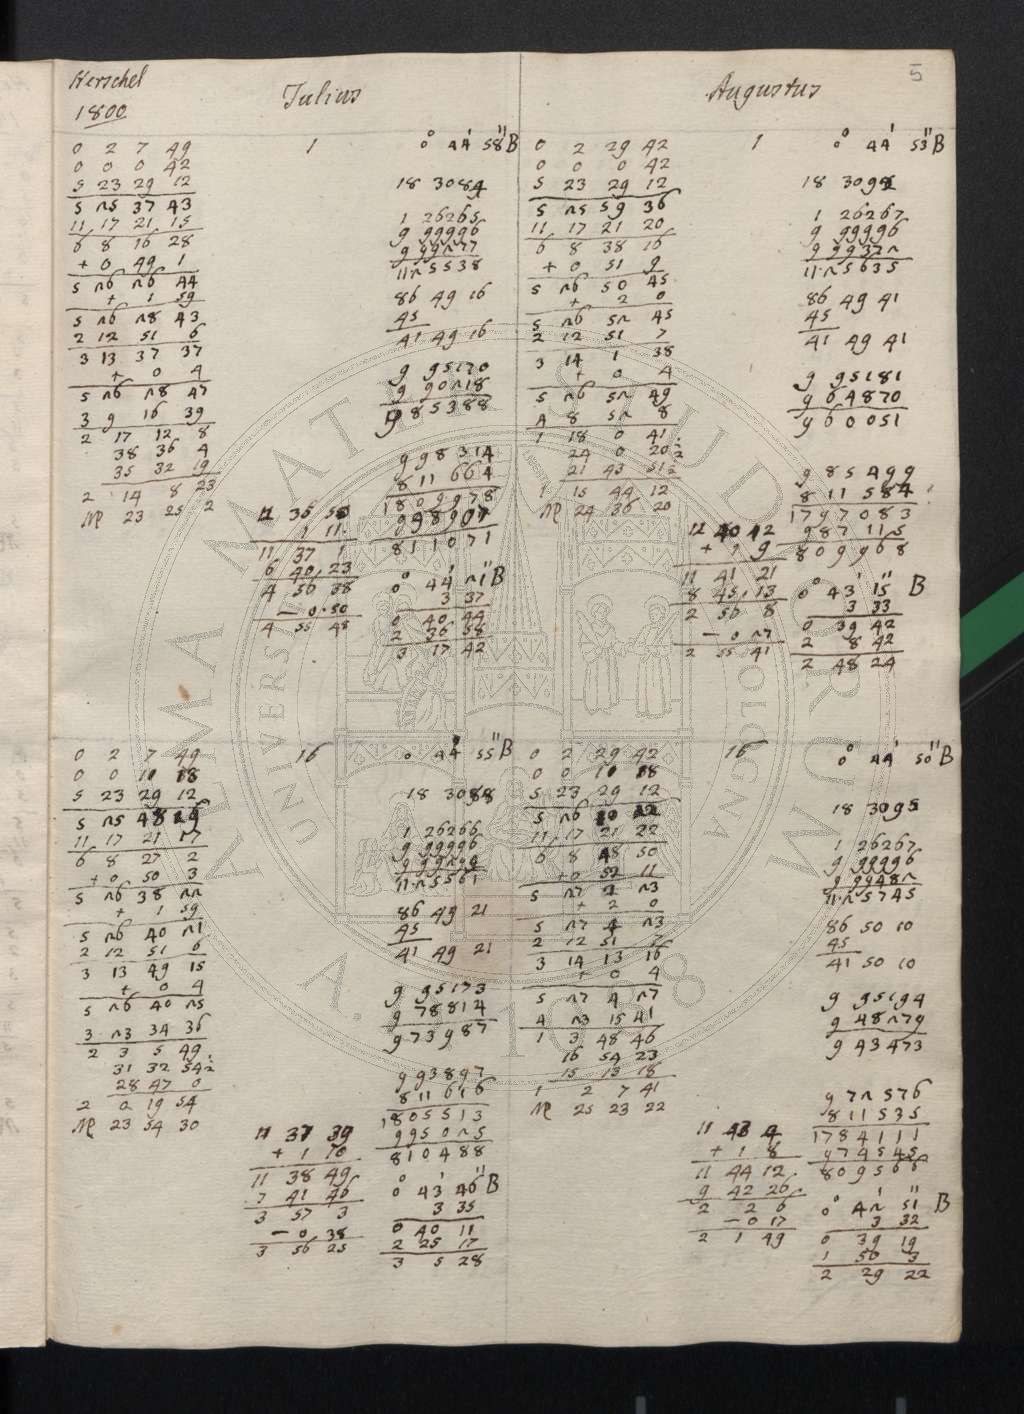 5
Herschel
1800
Julius
Augustus
0 2 7 49
0 0 0 42
5 23 29 12
5 25 37 43
11 17 21 15
6 8 16 28
+ 0 49 1
5 26 26 44
+ 1 59
5 26 28 43
2 12 51 6
3 13 37 37
+ 0 4
5 26 28 47
3 9 16 39
2 17 12 8
38 36 4
35 32 19
2 14 8 23
♍ 23 25 2
1
11 35 50
1 11
11 37 1
6 40 23
4 56 38
— 0.50
4 55 48
0° 44' 58" B
18 3084
1 26265
9 99996
9 99277
11.25538
86 49 16
45
41 49 16
9 95170
9 90218
9 85388
998314
811 664
1809978
998907
811071
0° 44' 21" B
3 37
0 40 44
2 36 58
3 17 42
0 2 29 42
0 0 0 42
5 23 29 12
5 25 59 36
11 17 21 20
6 8 38 16
+ 0 51 9
5 26 50 45
+ 2 0
5 26 52 45
2 12 51 7
3 14 1 38
+ 0 4
5 26 52 49
4 8 52 8
1 18 0 41
24 0 20½
21 43 51½
1 15 44 12
♍ 24 36 20
1
11 40 12
+ 1 9
11 41 21
8 45 13
2 56 8
— 0 27
2 55 41
0° 44' 53" B
18 3098
1 26267
9 99996
9 99372
11.25635
86 49 41
45
41 49 41
9 95181
9 64870
9 60051
985499
811584
1797083
987115
809968
0° 43' 15" B
3 33
0 39 42
2 8 42
2 48 24
0 2 7 49
0 0 11 18
5 23 29 12
5 25 48 19
11 17 21 17
6 8 27 2
+ 0 50 3
5 26 38 22
+ 1 59
5 26 40 21
2 12 51 6
3 13 49 15
+ 0 4
5 26 40 25
3 23 34 36
2 3 5 49
31 32 54½
28 47 0
2 0 19 54
♍ 23 54 30
16
11 37 39
+ 1 10
11 38 49
7 41 46
3 57 3
— 0.38
3 56 25
0° 44' 55" B
18 3088
1 26266
9 99996
9 99299
11.25561
86 49 21
45
41 49 21
9 95173
9 78814
973987
993897
811616
1805513
995025
810488
0° 43' 46" B
3 35
0 40 11
2 25 17
3 5 28
0 2 29 42
0 0 11 18
5 23 29 12
5 26 10 12
11 17 21 22
6 8 48 50
+ 0 52 11
5 27 2 23
+ 2 0
5 27 4 23
2 12 51 7
3 14 13 16
+ 0 4
5 27 4 27
4 23 15 41
1 3 48 46
16 54 23
15 13 18
1 2 7 41
♍ 25 23 22
16
11 43 4
+ 1 8
11 44 12
9 42 26
2 2 6
— 0 17
2 1 49
0° 44' 50" B
18 3095
1 26267
9 99996
9 99482
11.25745
86 50 10
45
41 50 10
9 95194
9 48279
9 43473
972576
811535
1784111
974545
809566
0° 42' 51" B
3 32
0 39 19
1 50 3
2 29 22
ALMA MATER STUDIORUM
UNIVERSITÀ DI BOLOGNA
A.D. 1088